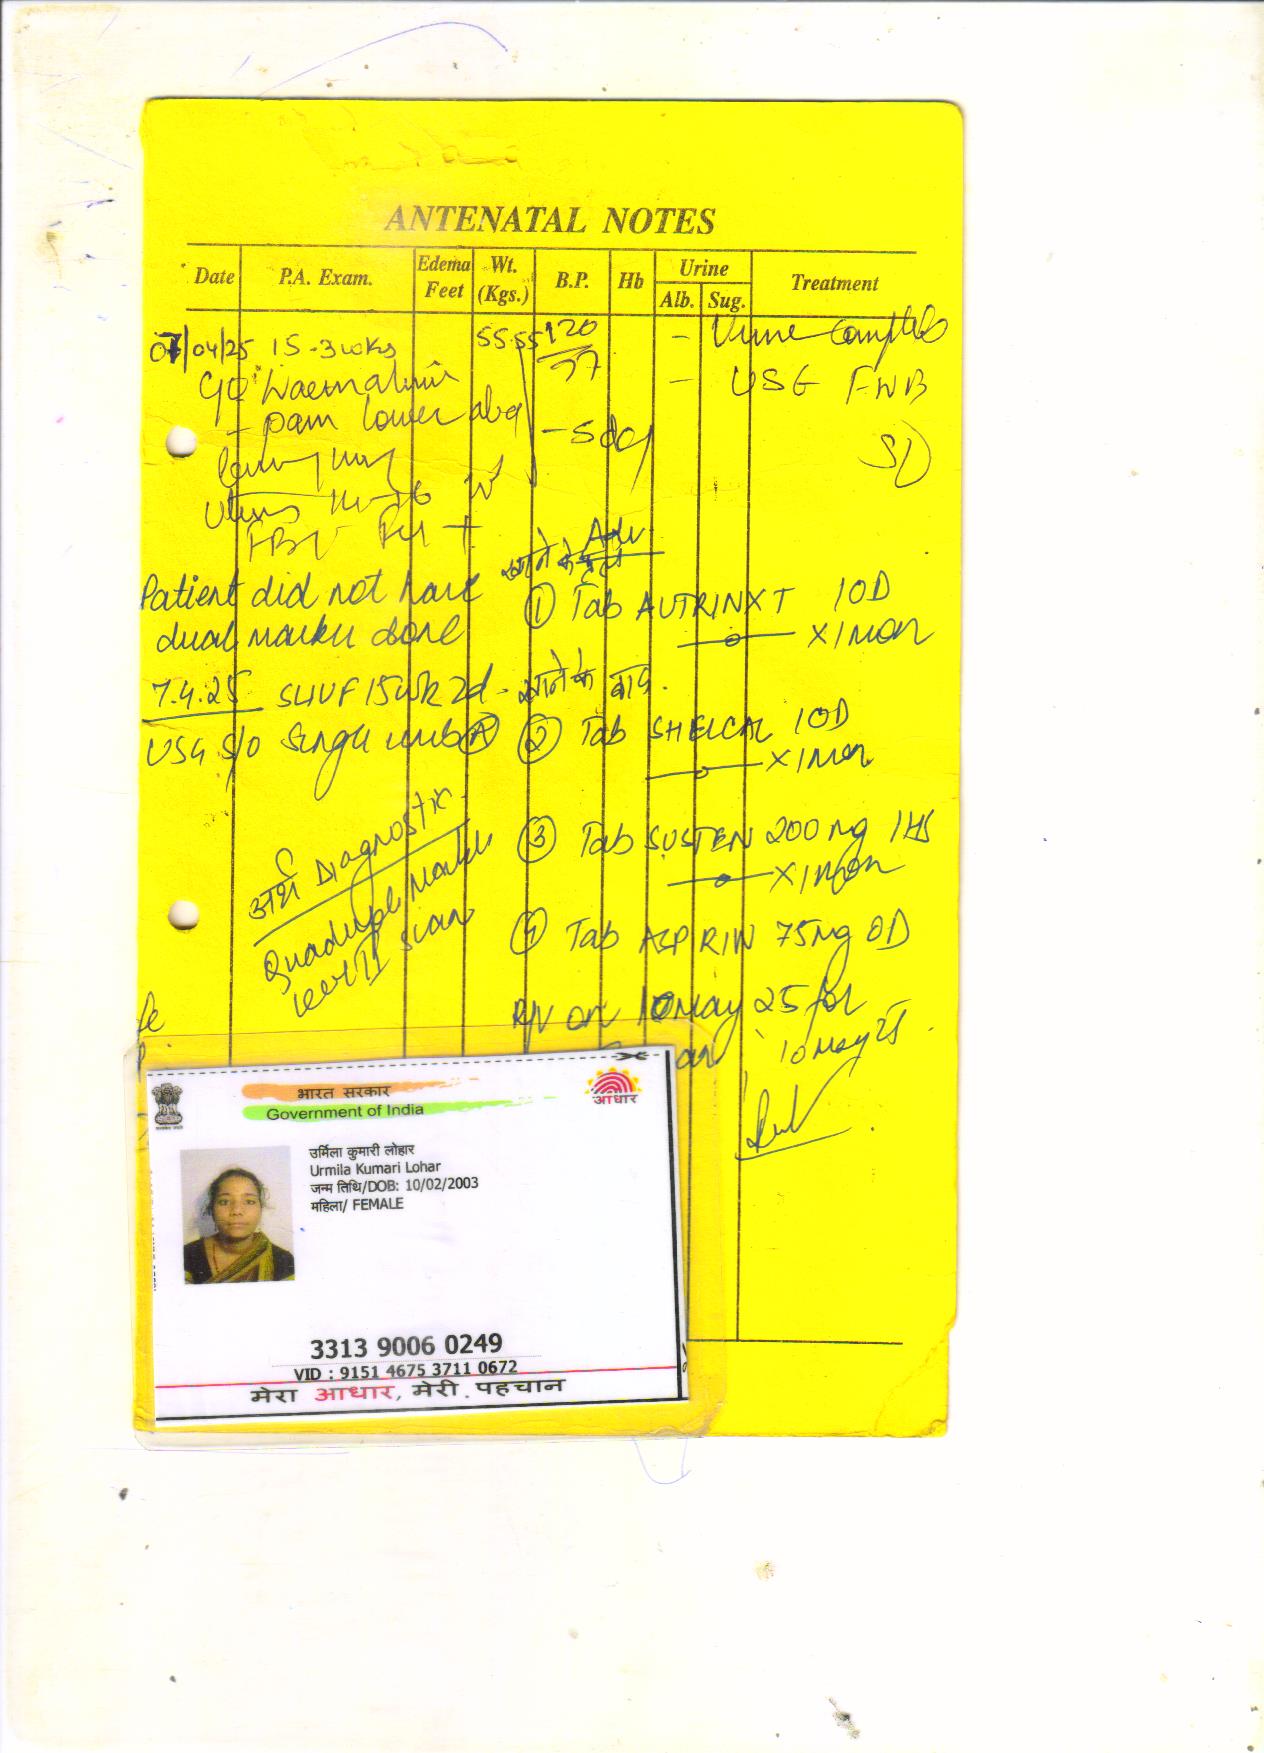 ANTENATAL NOTES
Date P.A. Exam. Edema Feet Wt. (Kgs.) B.P. Hb Urine Alb. Sug. Treatment
07/04/25 15-3wks 55.55 120/77 - Urine complete
c/o Haematuria - USG FWB
- pain lower abd - 5 day
Uterus
Adv
खाने के
Patient did not have ① Tab AUTRINXT 1OD
dual marker done x 1 mon
7.4.25 SLIUF 15wk 2d - खाने के बाद.
USG s/o single umb Ⓐ ② Tab SHELCAL 1OD
x 1 mon
③ Tab SUSTEN 200mg 1HS
x 1 mon
अर्थ Diagnostic
Quadruple Marker
level II scan
④ Tab ASPIRIN 75mg OD
R/V on 10 May 25 for
10 May 25.
भारत सरकार
Government of India
आधार
उर्मिला कुमारी लोहार
Urmila Kumari Lohar
जन्म तिथि/DOB: 10/02/2003
महिला/ FEMALE
3313 9006 0249
VID : 9151 4675 3711 0672
मेरा आधार, मेरी पहचान